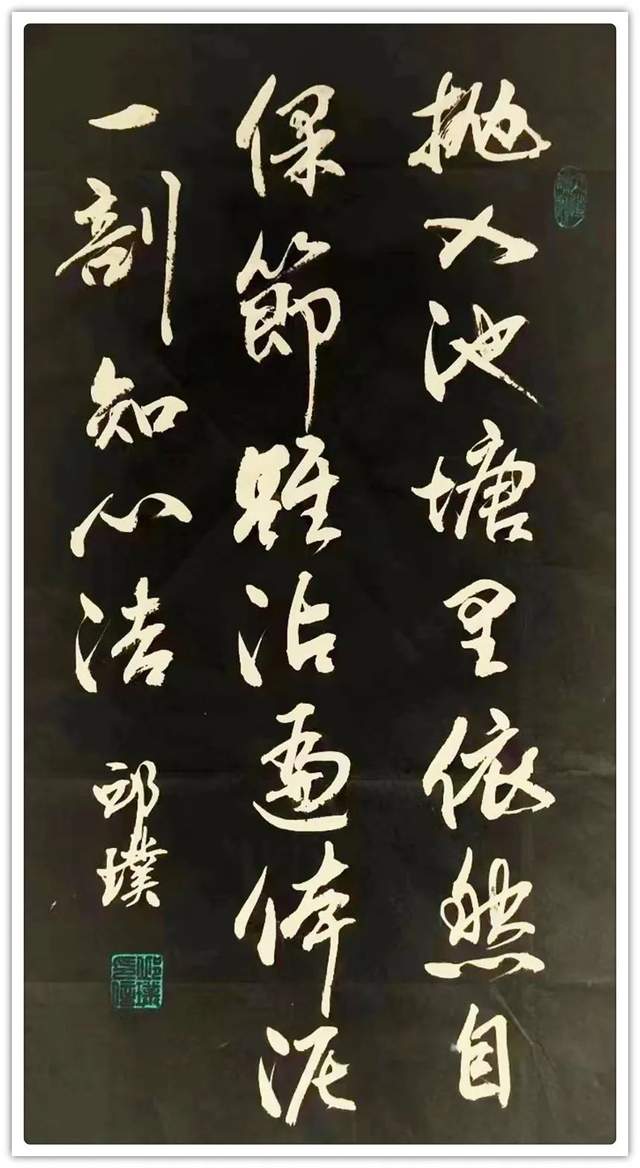 抛入池塘里依然自
保節雖沾遍体泥
一剖知心洁
邱璞